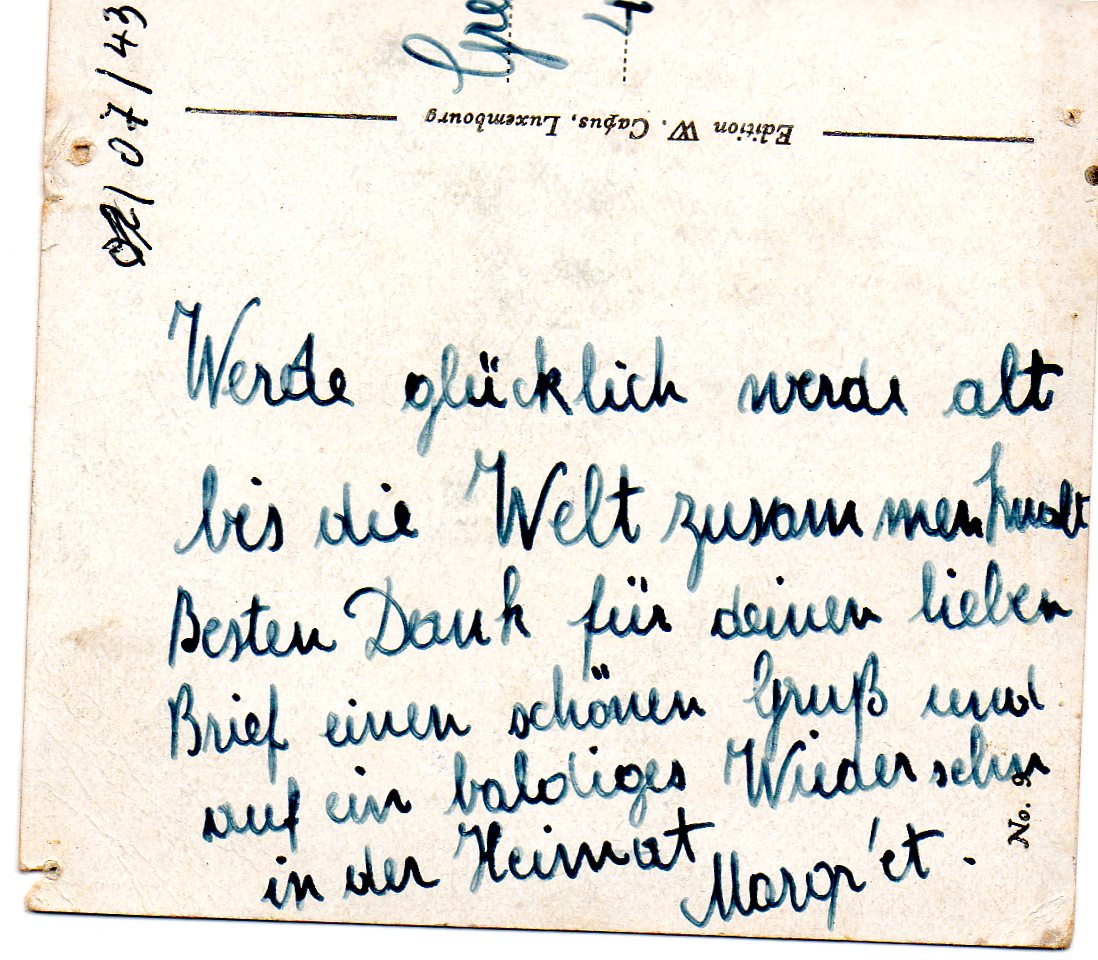 02/07/43
Gre
4
Edition W. Capus, Luxembourg
Werde glücklich werde alt
bis die Welt zusammenknalt
Besten Dank für deinen lieben
Brief einen schönen Gruß und
auf ein baldiges Wiedersehn
in der Heimat
Margr'et.
No. 9